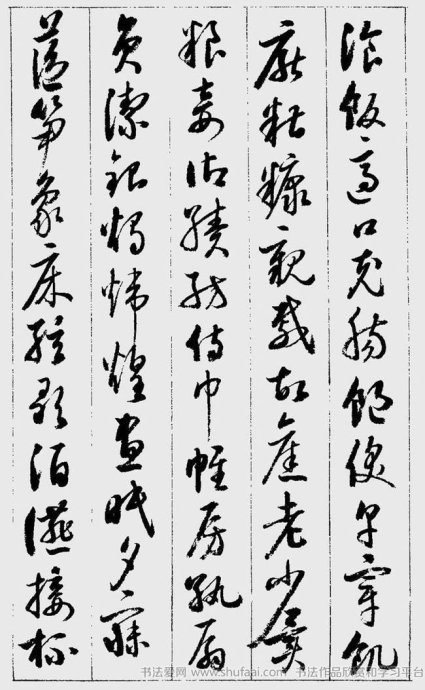 湌飯適口充腸飽飫亨宰飢
厭糟糠親戚故舊老少異
粮妾御績紡侍巾帷房紈扇
員潔銀燭煒煌晝眠夕寐
藍笋象床絃歌酒讌接杯
书法爱网 www.shufaai.com 书法作品欣赏和学习平台